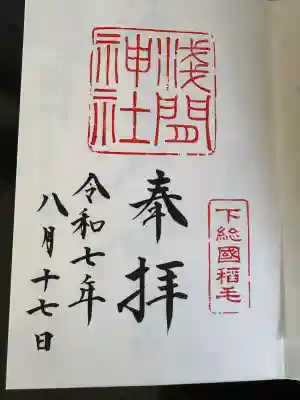 浅間
神社
下総國稲毛
奉拝
令和七年
八月十七日